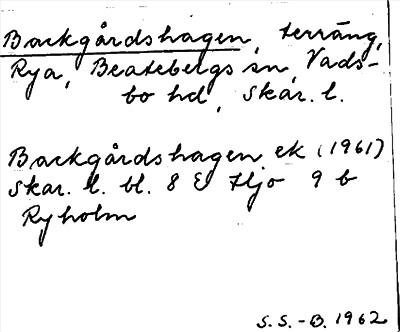 Backgårdshagen, terräng,
Rya, Beatebergs sn, Vads-
bo hd, Skar. l.
Backgårdshagen ek (1961)
Skar. l. bl. 8 E Hjo 9 b
Ryholm
S. S.-B. 1962